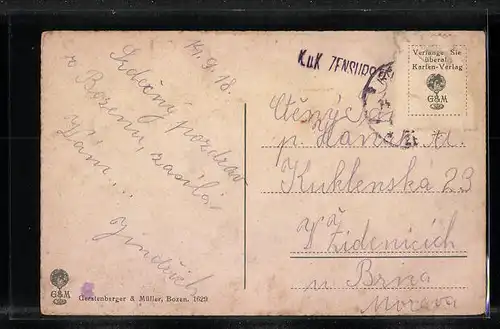 14.9.18.
Srdečný pozdrav
z Bozenu, zasílá
Vám...
Jindřich
K.u.K ZENSUR
Verlange Sie
überal
Karten-Verlag
G&M
p.
Kuklenská 23
v Židenicích
u Brna
Morava
G&M
Gerstenberger & Müller, Bozen. 1629.